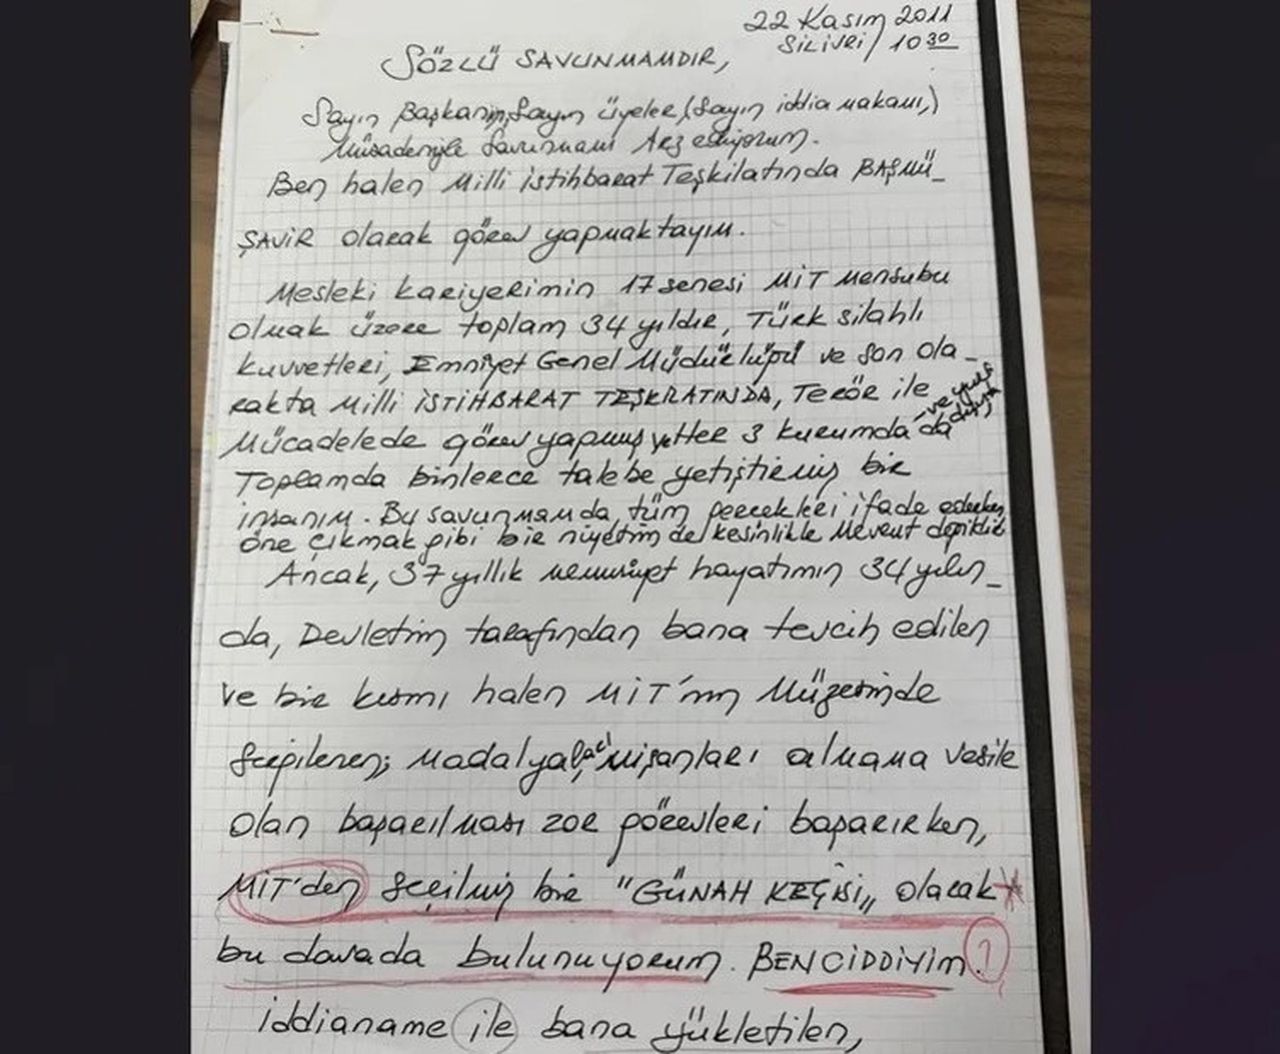 22 Kasım 2011
Silivri / 10 30
SÖZLÜ SAVUNMAMDIR,
Sayın Başkanım, Sayın üyeler, (Sayın iddia makamı,)
Müsadeniyle Savunmamı Arz ediyorum.
Ben halen Milli istihbarat Teşkilatında BAŞMÜ_
ŞAVİR olarak görev yapmaktayım.
Mesleki kariyerimin 17 senesi MİT mensubu
olmak üzere toplam 34 yıldır, Türk silahlı
kuvvetleri, Emniyet Genel Müdürlüğü ve son ola_
rakta Milli İSTİHBARAT TEŞKİLATINDA, Terör ile
Mücadelede görev yapmış, her 3 kurumda da ve yurt dışında
Toplamda binlerce talebe yetiştirmiş bir
insanım. Bu savunmamda, tüm gerçekleri ifade ederken,
öne çıkmak gibi bir niyetim de kesinlikle mevcut değildir.
Ancak, 37 yıllık memuriyet hayatımın 34 yılın_
da, Devletim tarafından bana tevcih edilen
ve bir kısmı halen MİT'nın Müzesinde
Sergilenen; Madalyaları, nişanları almama vesile
olan başarılması zor görevleri başarırken,
MİT'den Seçilmiş bir "GÜNAH KEÇİSİ" olarak
bu davada bulunuyorum. BEN CİDDİYİM.
iddianame ile bana yükletilen,